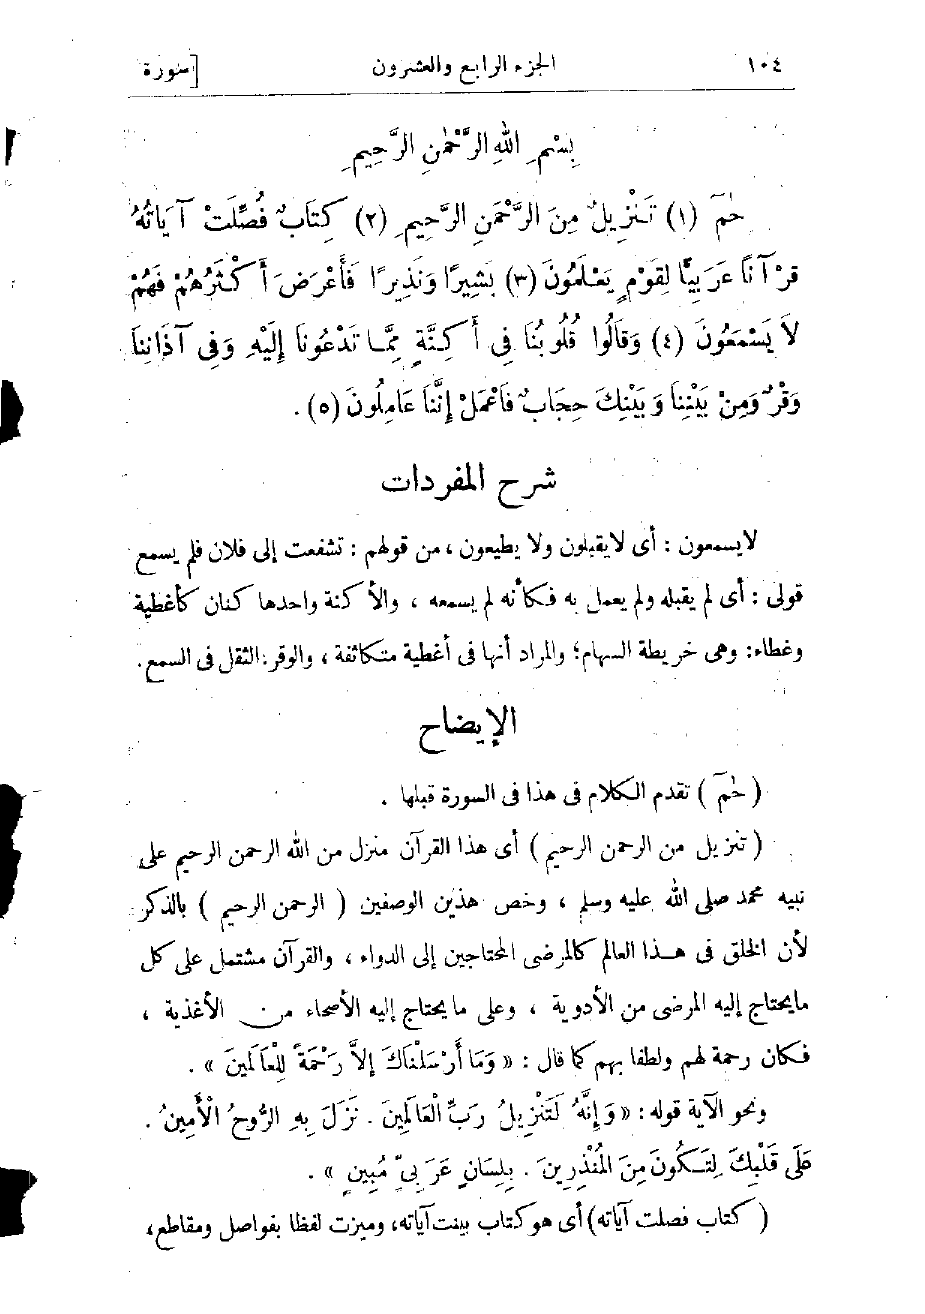 ١٠٤ الجزء الرابع والعشرون [سورة
بِسْمِ اللهِ الرَّحْمٰنِ الرَّحِيمِ
حٰمٓ (١) تَنْزِيلٌ مِنَ الرَّحْمَنِ الرَّحِيمِ (٢) كِتَابٌ فُصِّلَتْ آيَاتُهُ
قُرْآنًا عَرَبِيًّا لِقَوْمٍ يَعْلَمُونَ (٣) بَشِيرًا وَنَذِيرًا فَأَعْرَضَ أَكْثَرُهُمْ فَهُمْ
لاَ يَسْمَعُونَ (٤) وَقَالُوا قُلُوبُنَا فِى أَكِنَّةٍ مِمَّا تَدْعُونَا إِلَيْهِ وَفِى آذَانِنَا
وَقْرٌ وَمِنْ بَيْنِنَا وَبَيْنِكَ حِجَابٌ فَاعْمَلْ إِنَّنَا عَامِلُونَ (٥) .
شرح المفردات
لايسمعون : أى لايقبلون ولا يطيعون ، من قولهم : تشفعت إلى فلان فلم يسمع
قولى : أى لم يقبله ولم يعمل به فكأنه لم يسمعه ، والأكنة واحدها كنان كأغطية
وغطاء: وهى خريطة السهام؛ والمراد أنها فى أغطية متكاثفة ، والوقر: الثقل فى السمع.
الإيضاح
( حٰمٓ ) تقدم الكلام فى هذا فى السورة قبلها .
( تنزيل من الرحمن الرحيم ) أى هذا القرآن منزل من الله الرحمن الرحيم على
نبيه محمد صلى الله عليه وسلم ، وخص هذين الوصفين ( الرحمن الرحيم ) بالذكر
لأن الخلق فى هذا العالم كالمرضى المحتاجين إلى الدواء ، والقرآن مشتمل على كل
مايحتاج إليه المرضى من الأدوية ، وعلى مايحتاج إليه الأصحاء من الأغذية ،
فكان رحمة لهم ولطفا بهم كما قال : « وَمَا أَرْسَلْنَاكَ إِلاَّ رَحْمَةً لِلْعَالَمِينَ » .
ونحو الآية قوله : « وَإِنَّهُ لَتَنْزِيلُ رَبِّ الْعَالَمِينَ . نَزَلَ بِهِ الرُّوحُ الْأَمِينُ .
عَلَى قَلْبِكَ لِتَكُونَ مِنَ الْمُنْذِرِينَ . بِلِسَانٍ عَرَبِىٍّ مُبِينٍ » .
( كتاب فصلت آياته) أى هو كتاب بينت آياته، وميزت لفظا بفواصل ومقاطع،